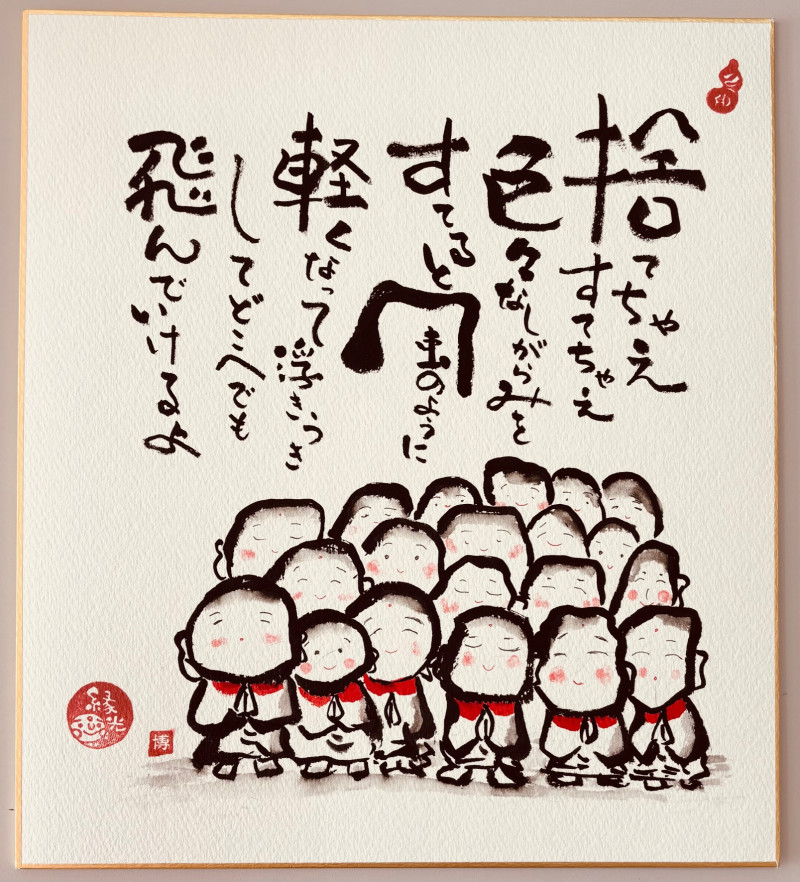 捨てちゃえ
すてちゃえ
色々なしがらみを
すてると
風のように
軽くなって浮きうき
してどこへでも
飛んでいけるよ
縁光
博